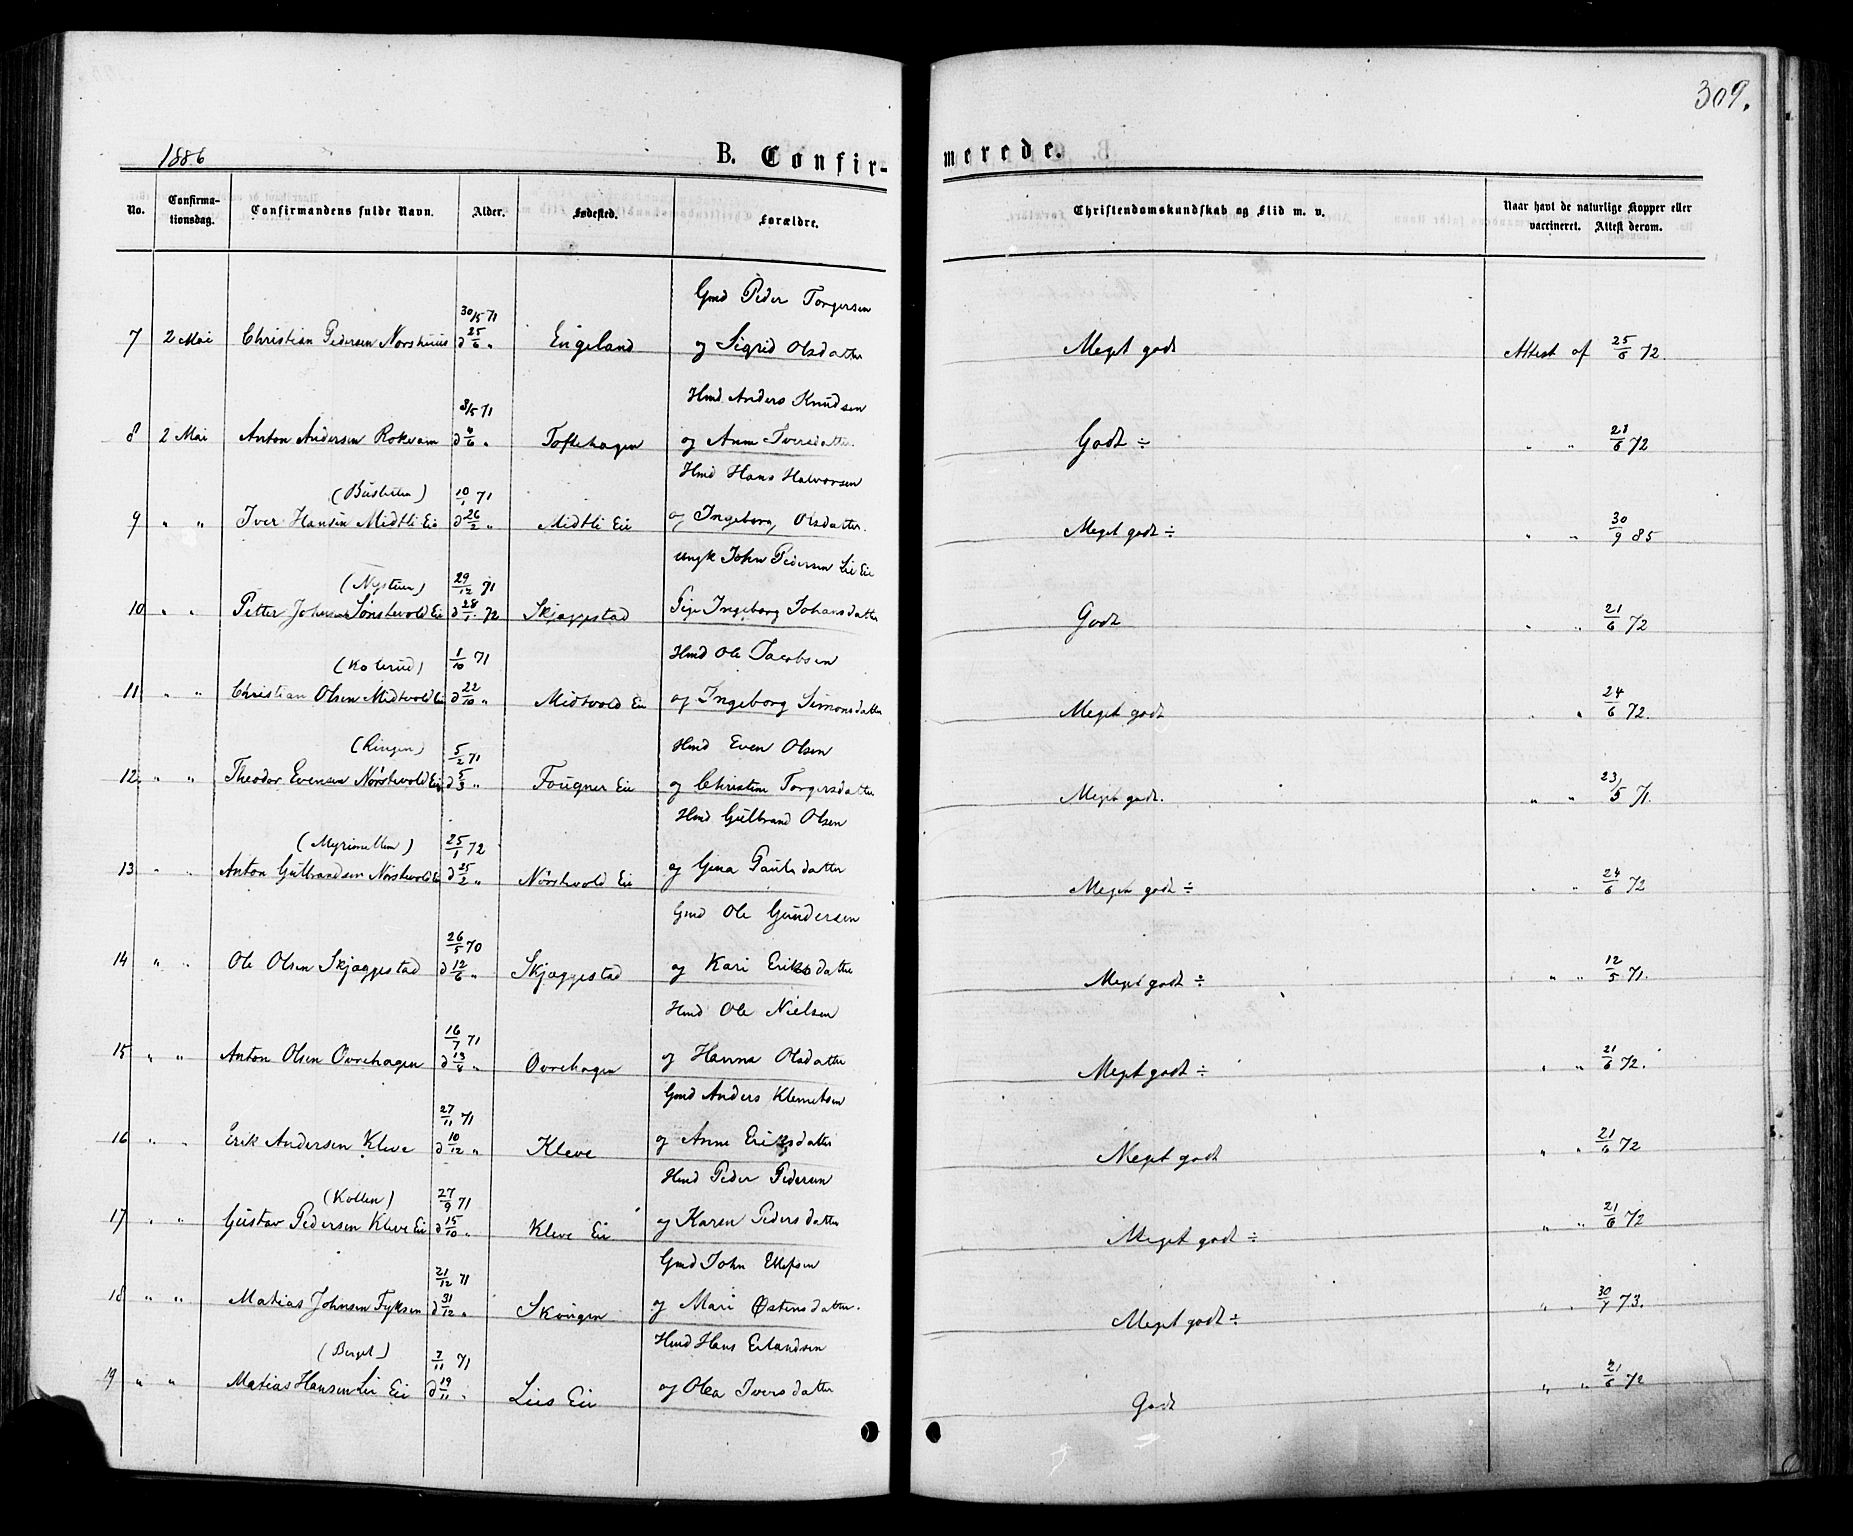 309.
1886
B. Confir-
merede.
No.
Confirma-
tionsdag.
Confirmandens fulde Navn.
Alder.
Fødested.
Forældre.
Christendomskundskab og Flid m. v.
Naar havt de naturlige Kopper eller
vaccineret. Attest derom.
30/5 71 Gmd Peder Torgersen
7 2 Mai Christian Pedersen Nørsthuus d 25/6 " Engeland og Sigrid Olsdatter Meget godt Attest af 25/6 72.
3/5 71 Hmd Anders Knudsen
8 2 Mai Anton Andersen Rokvam d 4/6 " Toftehagen og Anne Iversdatter. Godt ÷ " " 21/6 72
(Büslien) 10/1 71 Hmd Hans Halvorsen
9 " " Iver Hansen Midtli Eie d 26/2 " Midtli Eie og Ingeborg Olsdatter. Meget godt ÷ " " 30/9 85
(Nystuen) 29/12 71 Ungk John Pedersen Lie Eie
10 " " Petter Johnsen Sønstevold Eie d 28/1 72 Skjæggestad Pige Ingeborg Johansdatter Godt " " 21/6 72
(Kolerud) 1/10 71 Hmd Ole Jacobsen
11 " " Christian Olsen Midtvold Eie d 22/10 " Midtvold Eie og Ingeborg Simonsdatter Meget godt " " 24/6 72.
(Ringen) 5/2 71 Hmd Even Olsen
12. " " Theodor Evensen Nørstevold Eie d 5/3 " Fougner Eie og Christine Torgersdatter Meget godt. " " 23/5 71.
(Myrimellem) 25/1 72 Hmd Gulbrand Olsen
13 " " Anton Gulbrandsen Nørstevold Eie d 25/2 " Nørstevold Eie og Gina Paulsdatter Meget godt ÷ " " 24/6 72
26/5 70 Gmd Ole Gundersen
14 " " Ole Olsen Skjæggestad d 12/6 " Skjæggestad og Kari Eriksdatter Meget godt ÷ " " 12/5 71.
16/7 71 Hmd Ole Nielsen
15 " " Anton Olsen Øvrehagen d 13/8 " Øvrehagen og Hanna Olsdatter Meget godt ÷ " " 21/6 72.
27/11 71 Gmd Anders Klemetsen
16 " " Erik Andersen Kleve d 10/12 " Kleve og Anne Eriksdatter Meget godt " " 21/6 72
(Kollen) 27/9 71 Hmd Peder Pedersen
17 " " Gustav Pedersen Kleve Eie d 15/10 " Kleve Eie og Karen Pedersdatter Meget godt ÷ " " 21/6 72
21/12 71 Gmd John Ellefsen
18 " " Matias Johnsen Fyksen d 31/12 " Skougen og Mari Østensdatter. Meget godt ÷ " " 30/7 73.
(Berget) 7/11 71 Hmd Hans Erlandsen
19 " " Matias Hansen Lie Eie d 19/11 " Lies Eie og Olea Iversdatter Godt " " 21/6 72